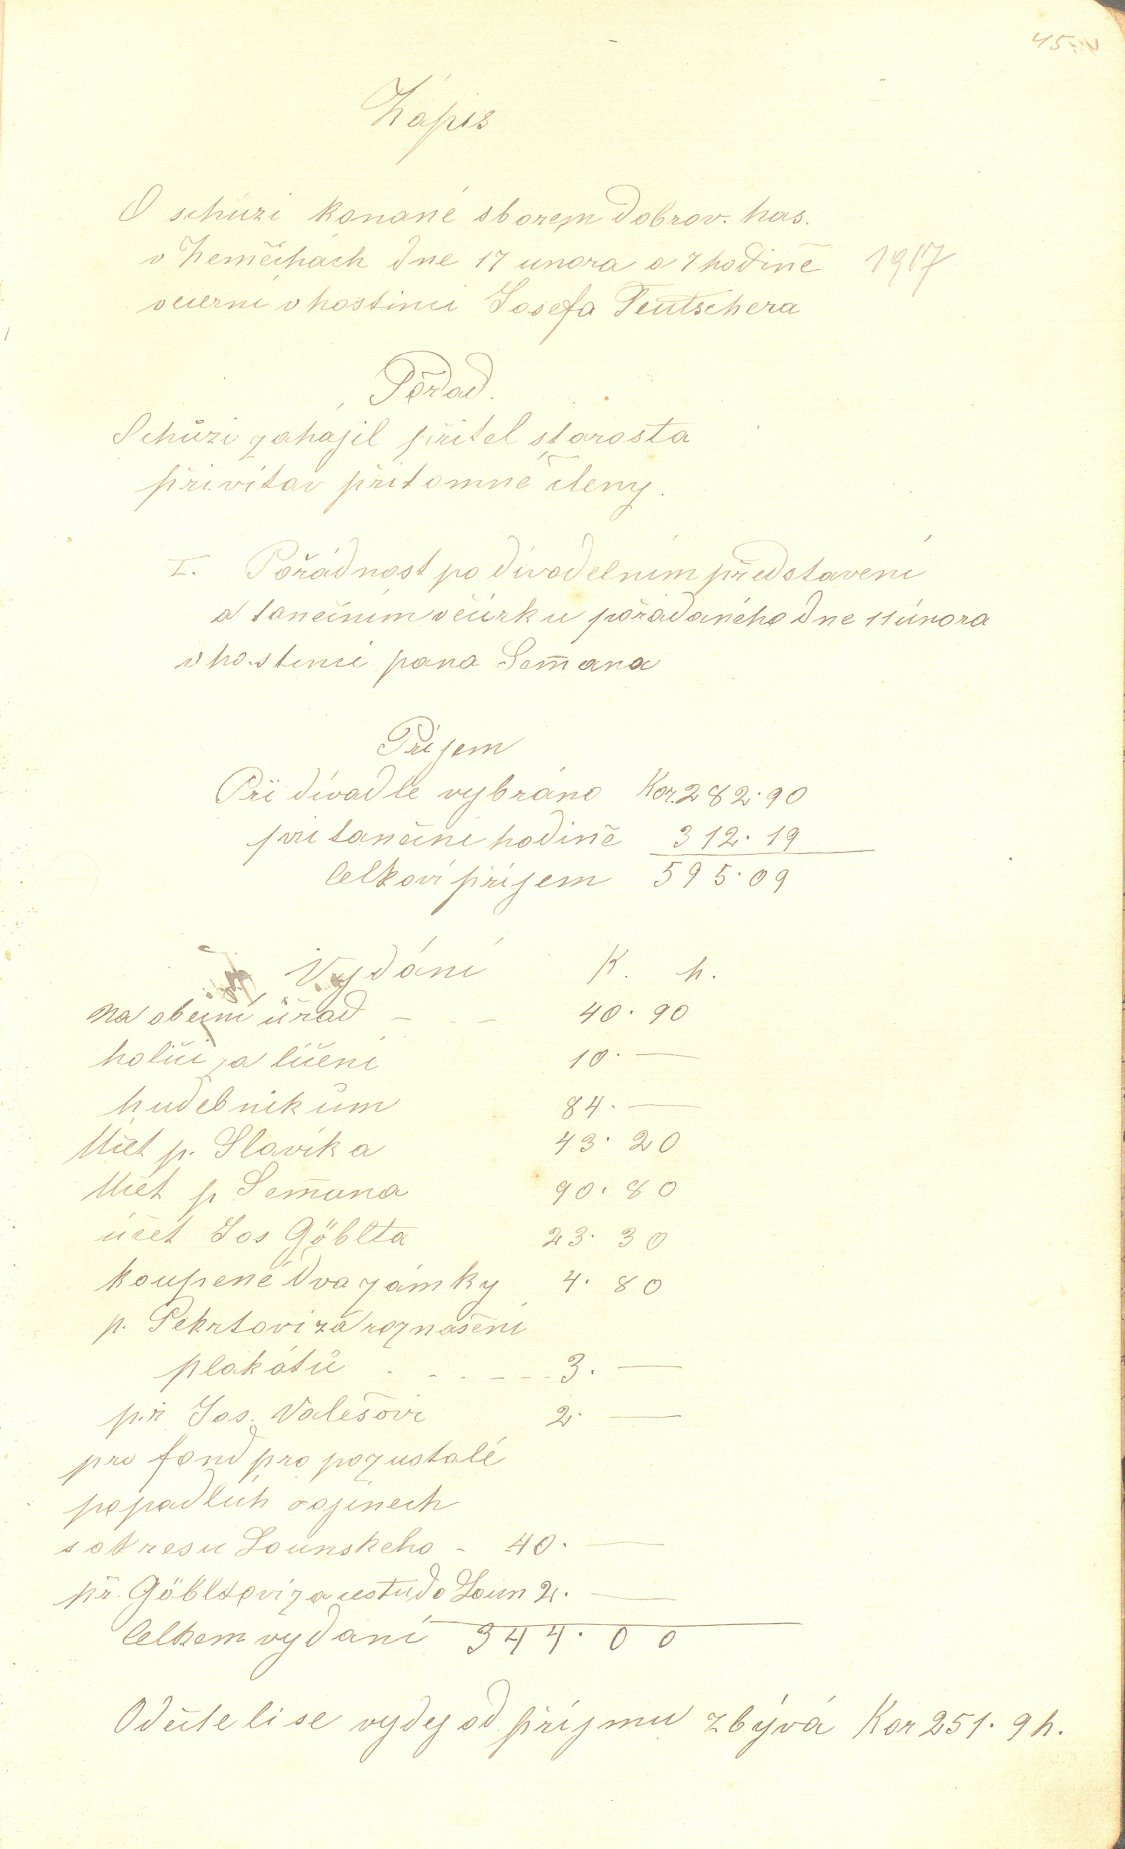 45
Zápis
O schúzi konané sborem dobrov. has.
v Zeměchách dne 17 unora o 7 hodině 1917
večerní v hostinci Josefa Teutschera
Pořad.
Schůzi zahájil přítel starosta
přivítav přítomné členy.
I. Pořádnost po divadelním představení
a tanečním večírku pořádaného dne 11 února
v hostinci pana Semana
Příjem
Při divadle vybráno Kor. 282·90
při taneční hodině 312·19
Celkoví příjem 595·09
Vydání K. h.
na obecní úřad - - - 40·90
holiči za líčení 10·—
hudebníkům 84·—
Učet p. Slavíka 43·20
Učet p Semana 90·80
účet Jos Göblta 23·30
koupené dva zámky 4·80
p. Pekrtovi za roznášení
plakátů . . - - - - 3.—
př Jos. Valešovi 2·—
pro fond pro pozustalé
po padlích vojínech
s okresu Lounskeho - 40·—
př. Göbltovi za cestu do Loun 2.—
Celkem vydaní 344·00
Odečteli se vydej od příjmu zbývá Kor 251·9h.